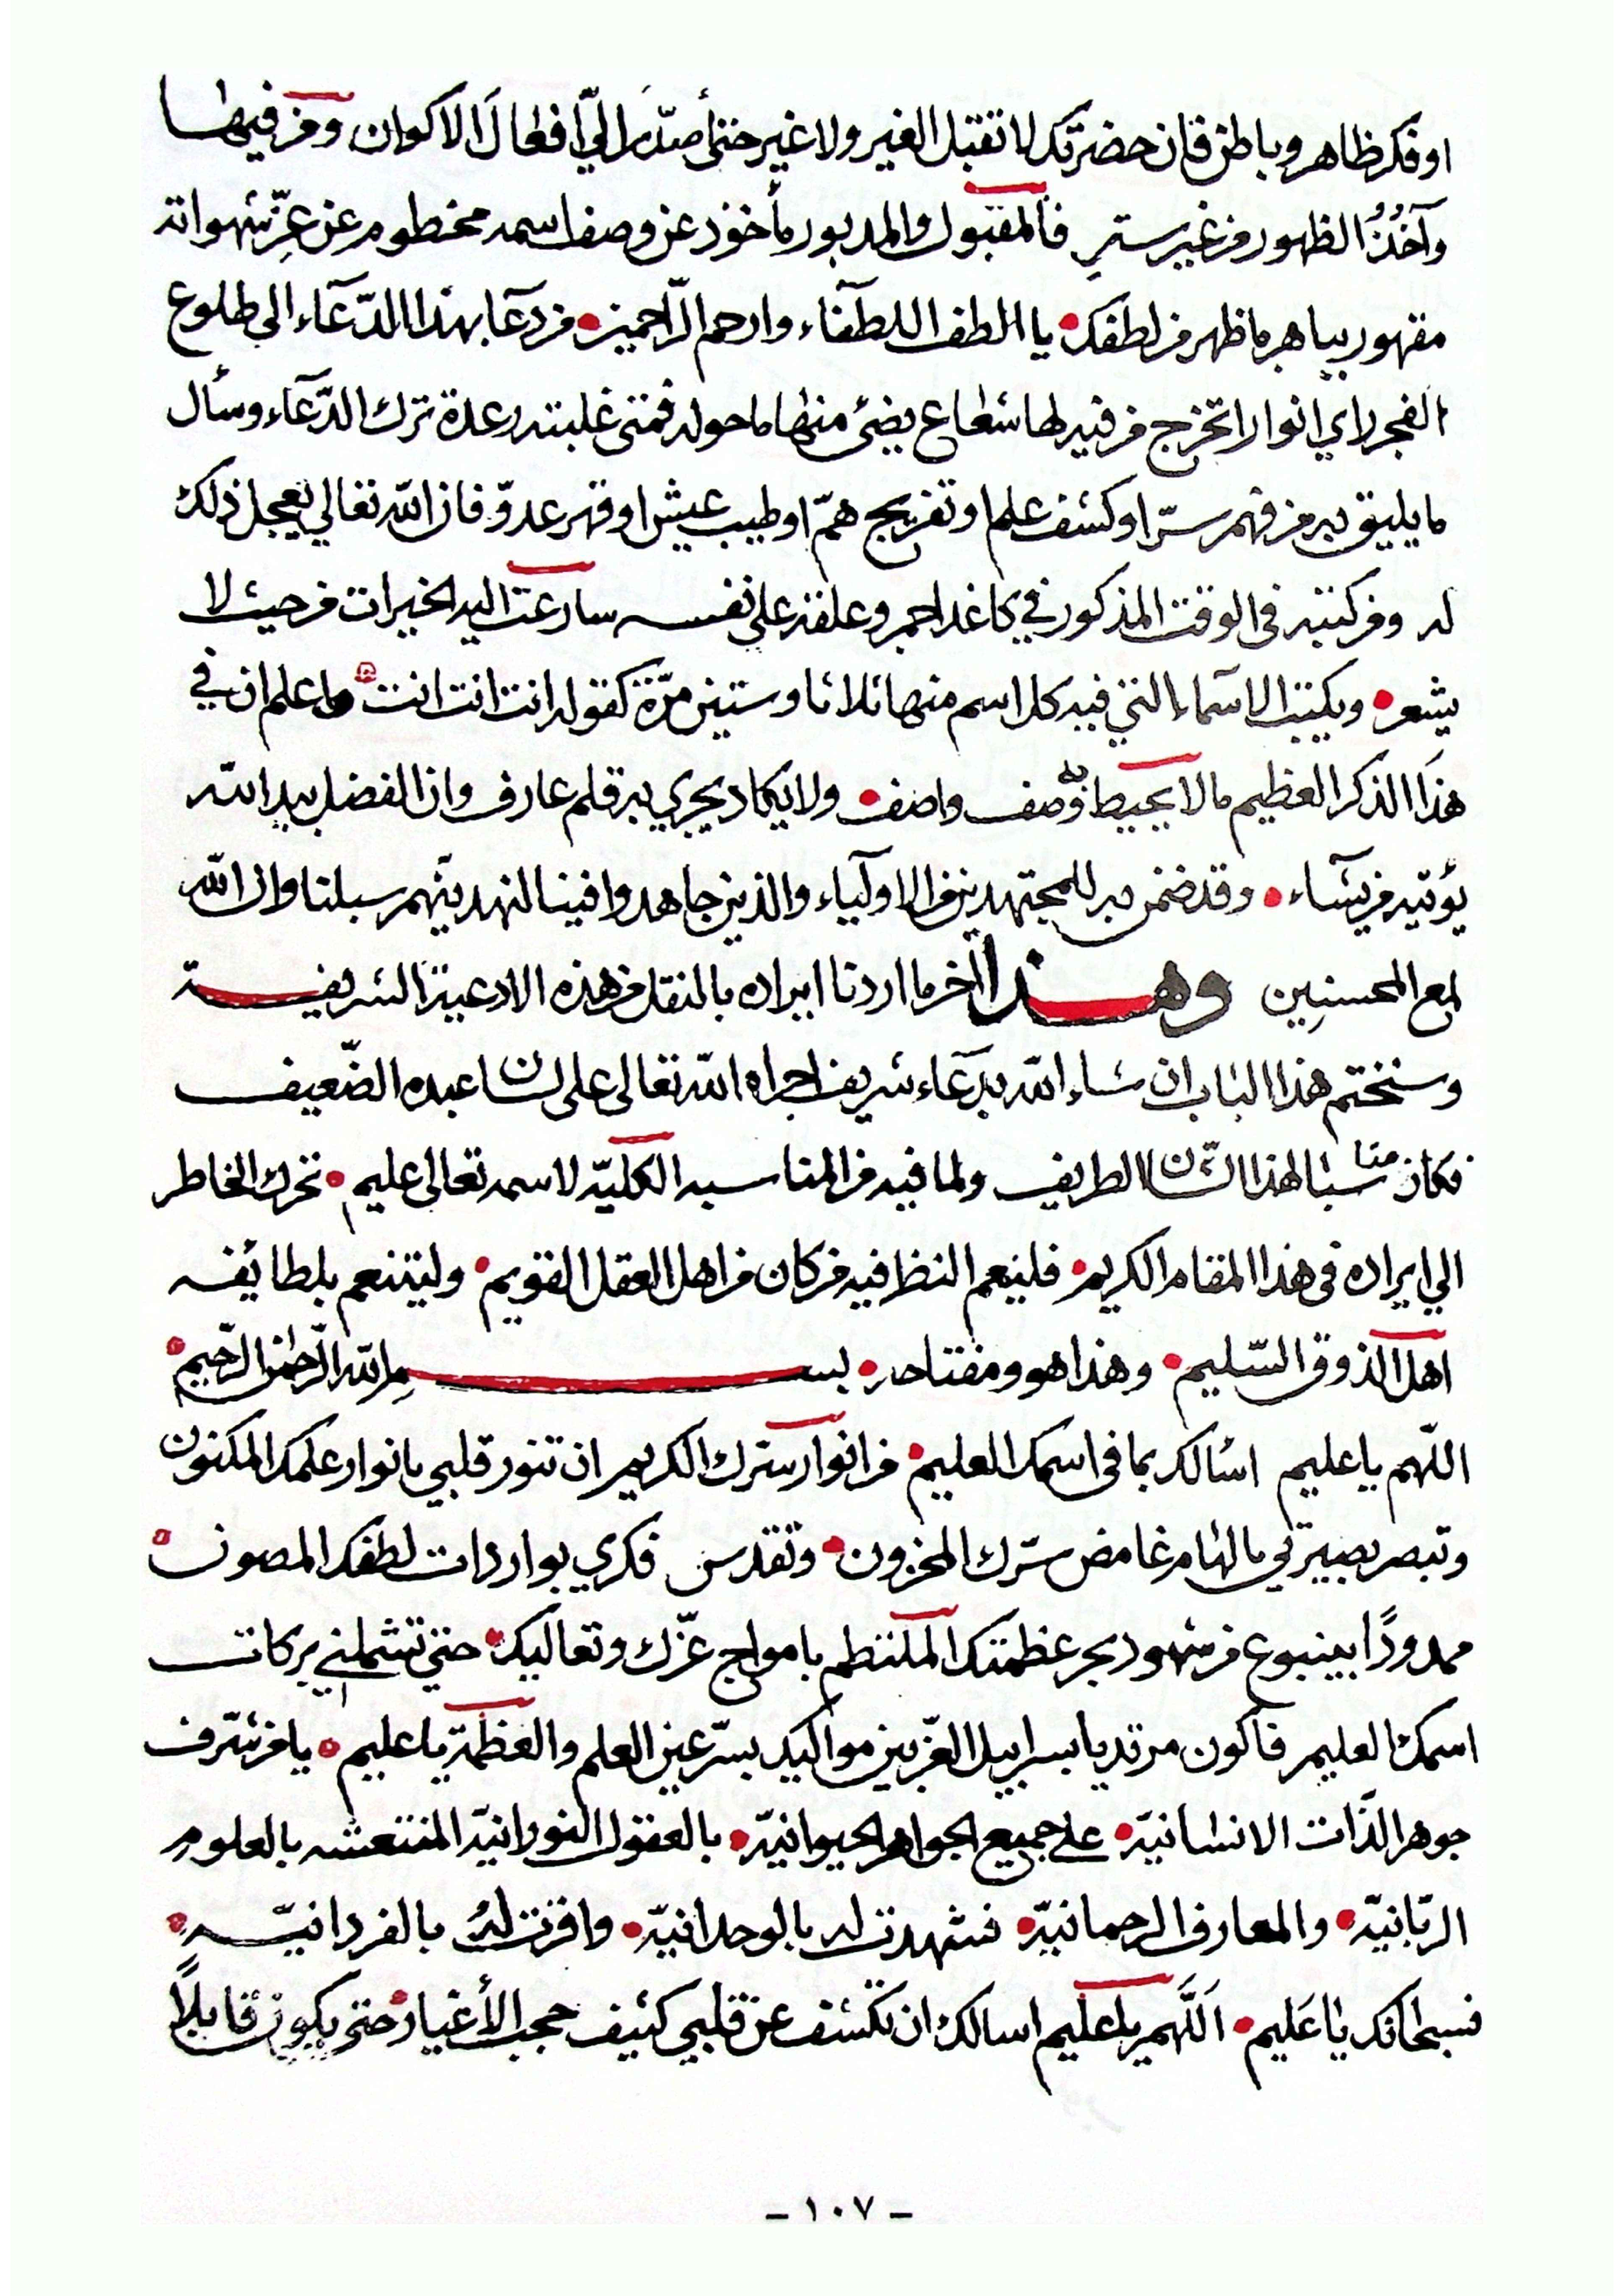 او فكر ظاهر وباطن فان حضرتك لا تقبل الغير ولا غير حتى أصدّر اليّ افعال الاكوان ومن فيها
وآخذ الظهور من غير ستر فالمقبول والمدبور مأخوذ عن وصف اسمه مخطوم عن عزّ شهواته
مقهور بباهر ما ظهر من لطفك يا الطف اللطفآء وارحم الرّاحمين من دعا بهذا الدّعآء الى طلوع
الفجر راي انوارا تخرج من فيه لها شعاع يضئ منها ما حوله فمتى غلبته رعدة ترك الدّعآء وسأل
ما يليق به من فهم سرّ او كشف علم او تفريج همّ او طيب عيش او قهر عدوّ فان الله تعالي يعجل ذلك
له ومن كتبه في الوقت المذكور في كاغد احمر وعلقه على نفسه سارعت اليه الخيرات من حيث لا
يشعر ويكتب الاسمآء التي فيه كل اسم منها ثلاثا وستين مرّة كقوله انت انت انت واعلم ان في
هذا الذكر العظيم ما لا يحيط به وصف واصف ولا يكاد يجري به قلم عارف وان الفضل بيد الله
يؤتيه من يشآء وقد ضمن به للمجتهدين من الاوليآء والذين جاهدوا فينا لنهدينّهم سبلنا وان الله
لمع المحسنين وهذا آخر ما اردنا ايراده بالنقل من هذه الادعية الشريفة
وسنختم هذا الباب ان شاء الله بدعآء شريف اجراه الله تعالى على لسان عبده الضّعيف
فكان مناسبا لهذا الشّان الطريف ولما فيه من المناسبه الكليّه لاسمه تعالى عليم تحرك الخاطر
الي ايراده في هذا المقام الكريم فلينعم النظر فيه من كان من اهل العقل القويم وليتنعم بلطايفه
اهل الذوق السّليم وهذا هو ومفتاحه بسم الله الرّحمن الرّحيم
اللّهم يا عليم اسٔالك بما في اسمك العليم من انوار سرّك الكريم ان تنور قلبي بانوار علمك المكنون
وتبصر بصيرتي بالهام غامض سرّك المخزون وتقدس فكري بواردات لطفك المصون
ممدودًا بينبوع من شهود بحر عظمتك الملتطم بامواج عزّك وتعاليك حتى تشملني بركات
اسمك العليم فاكون مرتديا بسرابيل العز بين مواليك بسرّ عين العلم والعظمة يا عليم يا من شرّف
جوهر الذّات الانسانيّه على جميع الجواهر الحيوانيّه بالعقول النورانيّة المنتعشه بالعلوم
الربّانيّه والمعارف الرحمانيّه فشهدت له بالوحدانيّه واقرت له بالفردانيّه
فسبحانك يا عليم اللّهم يا عليم اسالك ان تكشف عن قلبي كثيف حجب الأغيار حتى يكون قابلاً
- ١٠٧ -